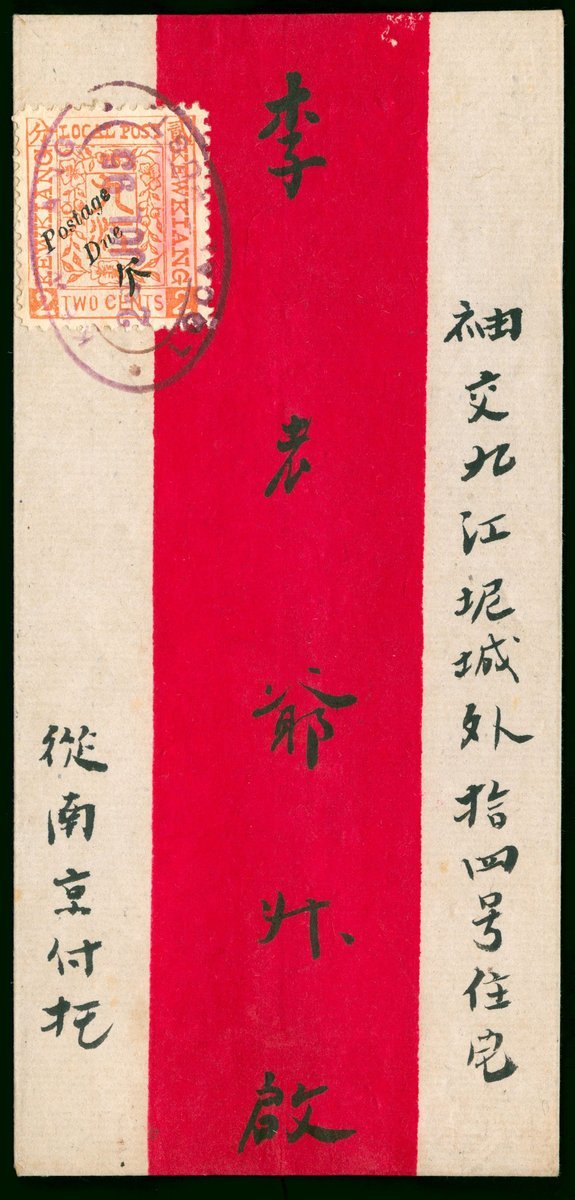 袖交九江坭城外拾四号住宅
李老爺升啟
從南京付托
分 LOCAL POST 貳
KEWKIANG
KEWKIANG
Postage
Due
欠
2 TWO CENTS 2